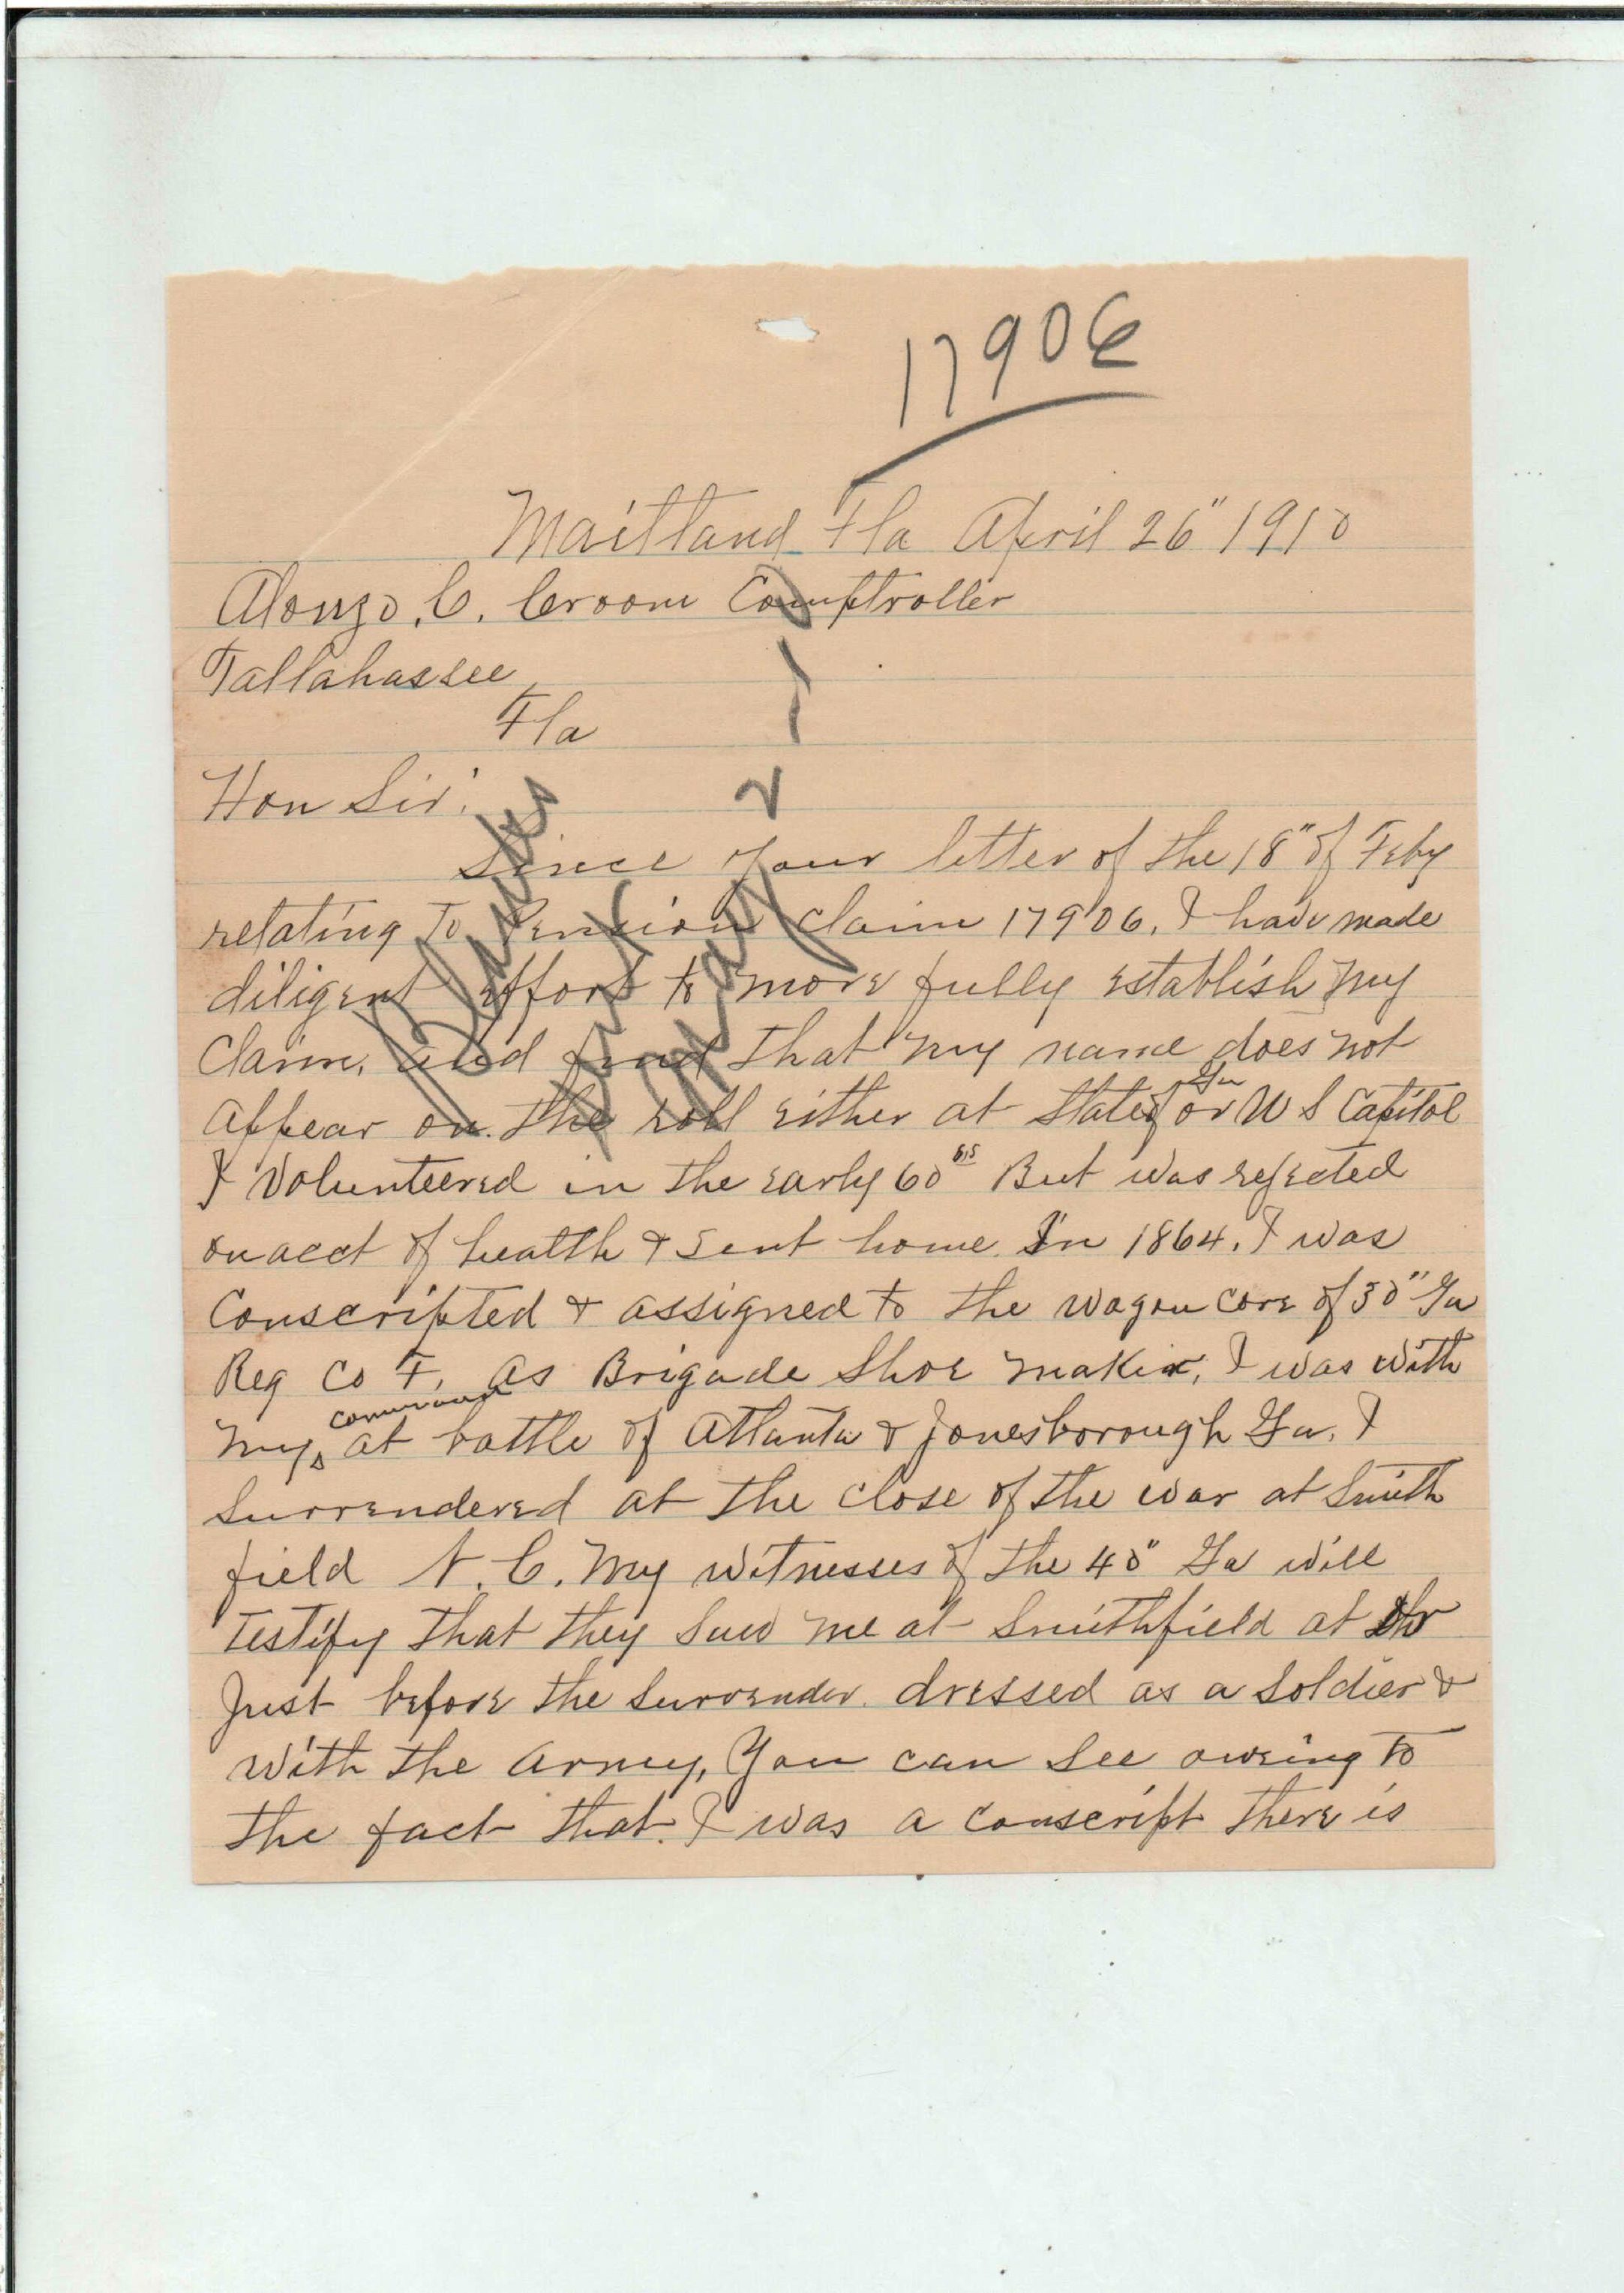 17906
Maitland Fla April 26" 1910
Alonzo. C. Croom Comptroller
Tallahassee
Fla
Hon Sir:
Since your letter of the 18" of Feby
relating To Pension claim 17906. I have made
diligent effort to more fully establish my
Claim, and find that my name does not
Appear on the roll either at State of Ga or U S Capitol
I Volunteered in the early 60s But was rejected
on acct of health & Sent home. In 1864. I was
Conscripted & assigned to the wagon core of 30" Ga
Reg Co F. As Brigade Shoe maker, I was with
my command at battle of Atlanta & Jonesborough Ga. I
Surrendered at the close of the war at Smith
field N. C. My witnesses of the 40" Ga will
Testify that they Saw me at Smithfield at
Just before the Surrender dressed as a Soldier &
with the army, You can See oweing To
the fact that I was a conscript there is
Blanks
May 2 - 10